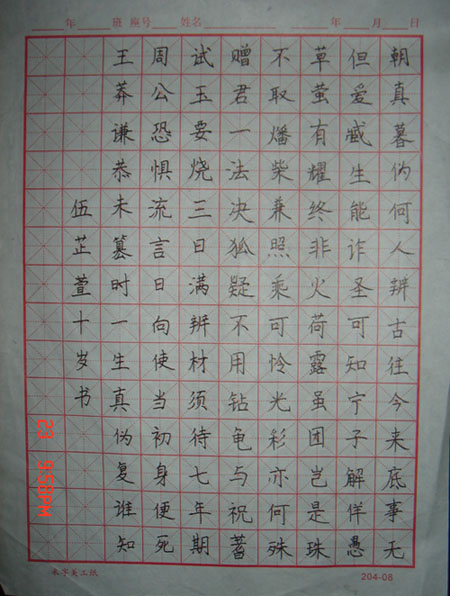 年 班 座号 姓名 年 月 日
朝真暮伪何人辨古往今来底事无
但爱臧生能诈圣可知宁子解佯愚
草萤有耀终非火荷露虽团岂是珠
不取燔柴兼照乘可怜光彩亦何殊
赠君一法决狐疑不用钻龟与祝蓍
试玉要烧三日满辨材须待七年期
周公恐惧流言日向使当初身便死
王莽谦恭未篡时一生真伪复谁知
伍芷萱十岁书
23 9:58PM
204-08